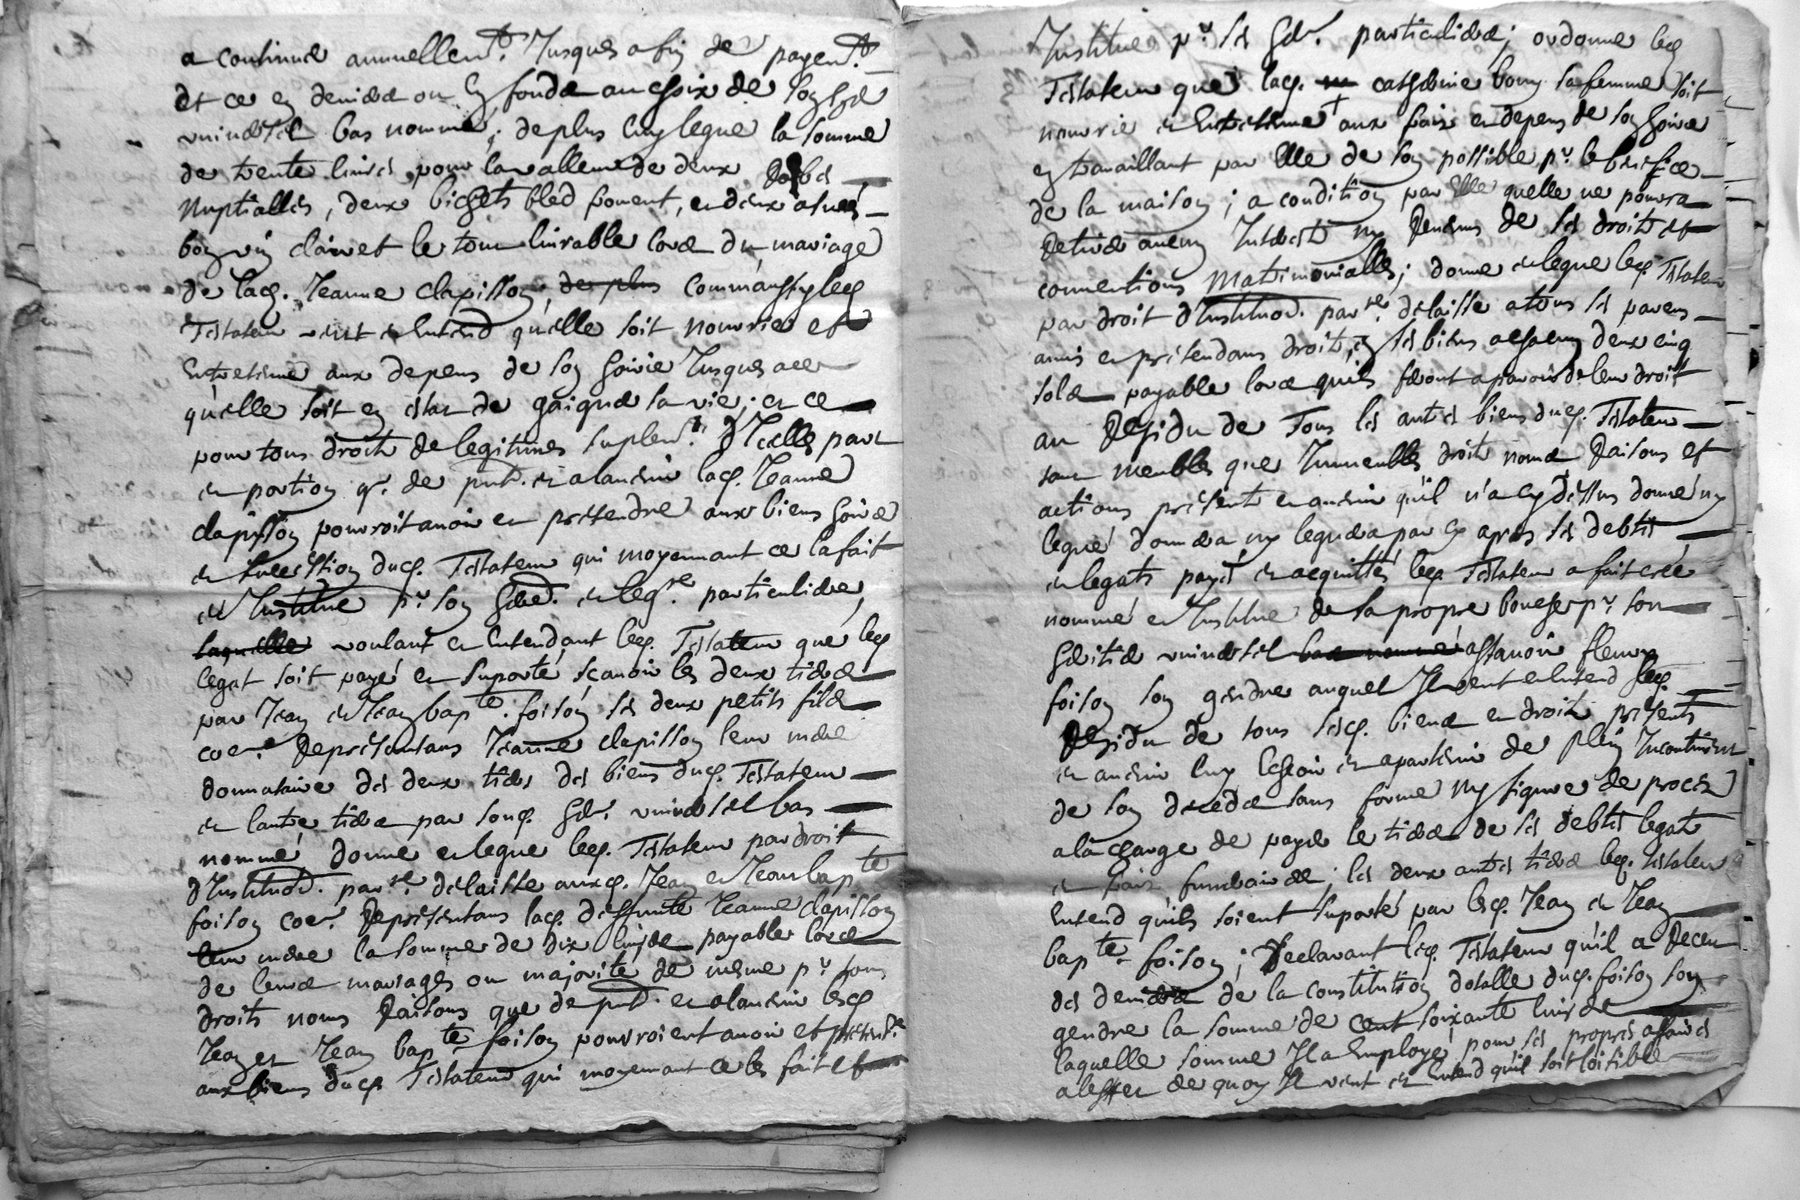 a continue annuellem.t Jusques a fin de payem.t
et ce en deniers ou en fonds au choix de son her
universel bas nommé; de plus luy legue la somme
de trente livres pour la vallem de deux robes
Nuptialles, deux bichets bled froment, et deux asnées
bon vin clairet le tout livrable lors du mariage
de lad. Jeanne clapisson; de plus comm aussy led
Testateur veut et Entend qu'elle soit nourrie et
Entretenue aux depens de son hoirie Jusques a ce
qu'elle soit en estat de gaigner sa vie; et ce
pour tous droits de legitimes suplem.t d'Icelle part
et portion q. de p.nt et a lavenir lad. Jeanne
clapisson pourroit avoir et prettendre aux biens hoirie
et succession dud. Testateur qui moyennant ce la fait
et Institue p.r son hered. et leg.re particuliere,
laquelle voulant et Entendant led. Testateur que led
legat soit payé et suporté, sçavoir les deux tiers
par Jean et Jean bap.te foison ses deux petits fils
coer.s Representans Jeanne clapisson leur mere
donnataire des deux tiers des biens dud. Testateur
et lautre tiers par sond. her. universel bas
nommé donne et legue led. Testateur par droit
d'Institu.on par.re delaisse auxd. Jean et Jean bap.te
foison coer. Representans lad. deffunte Jeanne clapisson
leur mere la somme de dix livres payable lors
de leurs mariages ou majorité de meme p.r tous
droits noms Raisons que de p.nt et a lavenir lesd
Jean et Jean bap.te foison pourroient avoir et pretend.re
aux biens dud. Testateur qui moyennant ce les fait et
Institue p.r ses her. particuliers; ordonne led
Testateur que lad. catherine bony sa femme soit
nourrie et Entretenue aux frais et depens de son hoirie
en travaillant par Elle de son possible p.r le benefice
de la maison; a condition par Elle quelle ne pourra
Retirer aucun Interest ny Revenus de ses droits et
conventions Matrimonialles; donne et legue led. Testateur
par droit d'Institu.on par.re delaisse a tous ses parens
amis et prétendans droit en ses biens a chacun deux cinq
sols payable lors qu'ils feront aparoir de leur droit
au Residu de Tous les autres biens dud. Testateur
tant meubles que Immeubles droits noms Raisons et
actions présents et avenir qu'il n'a cy dessus donné ny
legué donnera ny leguera par cy apres ses debtes
et legats payés et acquittés led. Testateur a fait créé
nommé et Institué de sa propre bouche p.r son
heritier universel bas nommé assavoir fleury
foison son gendre auquel Il veut et Entend led.
Residu de tous sesd. biens et droits présents
et avenir luy Echeoir et apartenir de plein Incontinent
de son decede sans forme ny figure de proces
a la charge de payer le tiers de ses debtes legats
et frais funeraires; les deux autres tiers led. testateur
Entend qu'ils soient suporté par lesd. Jean et Jean
bap.te foison; Declarant led. Testateur qu'il a Receu
des deniers de la constitution dotalle dud. foison son
gendre la somme de cent soixante livres
laquelle somme Il a Employé pour ses propres affaires
a leffet de quoy Il veut et Entend qu'il soit loisible